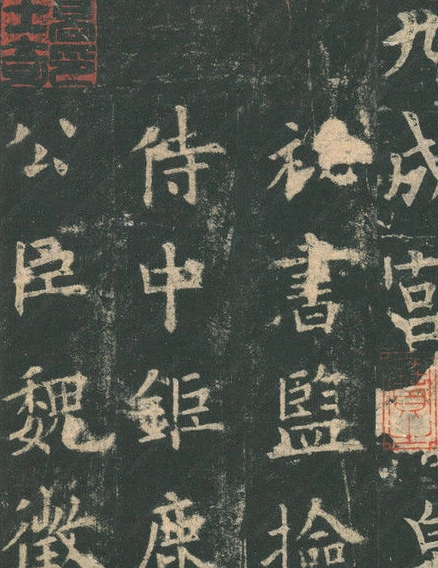 九成宮泉
祕書監撿
侍中鉅鹿
公臣魏徵